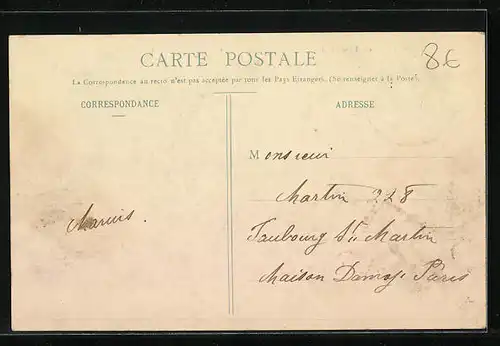 CARTE POSTALE
8€
La Correspondance au recto n'est pas acceptée par tous les Pays Etrangers. (Se renseigner à la Poste).
CORRESPONDANCE
ADRESSE
Monsieur
Martin 228
Faubourg St Martin
Maison Paris
Marius.